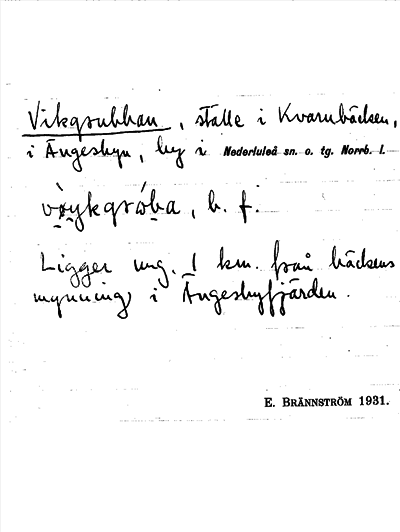 Vikgrubban, ställe i Kvarnbäcken,
i Ängesbyn, by i Nederluleå sn. o. tg. Norrb. l.
vò̤y̤kgróba̤, b. f.
Ligger ung. 1 km. från bäckens
mynning i Ängesbyfjärden.
E. BRÄNNSTRÖM 1931.